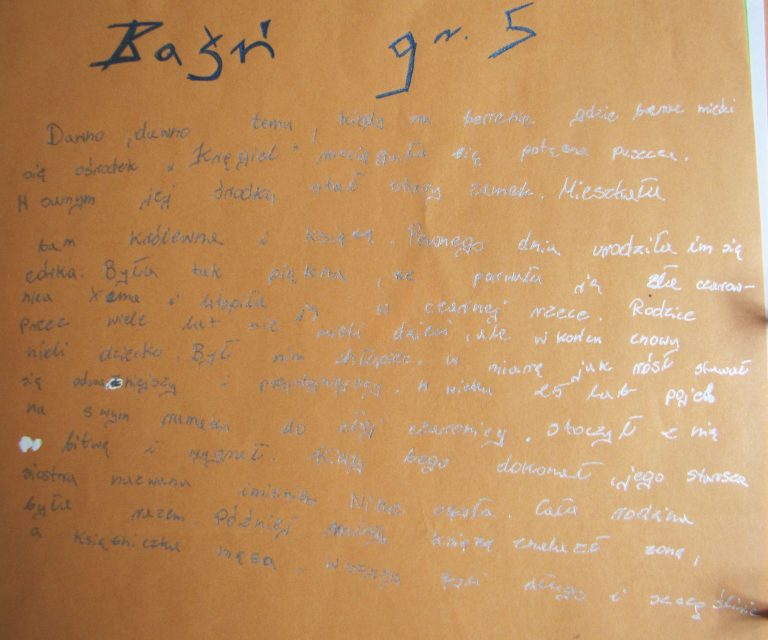 Baśń gr. 5
Dawno, dawno temu, kiedy na terenie gdzie teraz mieści
się ośrodek „Kręgiel" rozciągała się potężna puszcza.
W samym jej środku stał stary zamek. Mieszkała
tam królewna i książę. Pewnego dnia urodziła im się
córka. Była tak piękna, że porwała ją zła czarow-
nica i utopiła ją w czarnej rzece. Rodzice
przez wiele lat nie mieli dzieci, ale w końcu znowy
mieli dziecko. Był nim chłopiec. W miarę jak rósł stawał
się odważniejszy i W wieku 25 lat pojechał
na swym rumaku do złej czarownicy. stoczył z nią
bitwę i wygrał. Kiedy tego dokonał, jego starsza
siostra nazwana imieniem Nike ożyła. Cała rodzina
była razem Później książę znalazł żonę,
a księżniczka męża. Wszyscy żyli długo i szczęśliwie